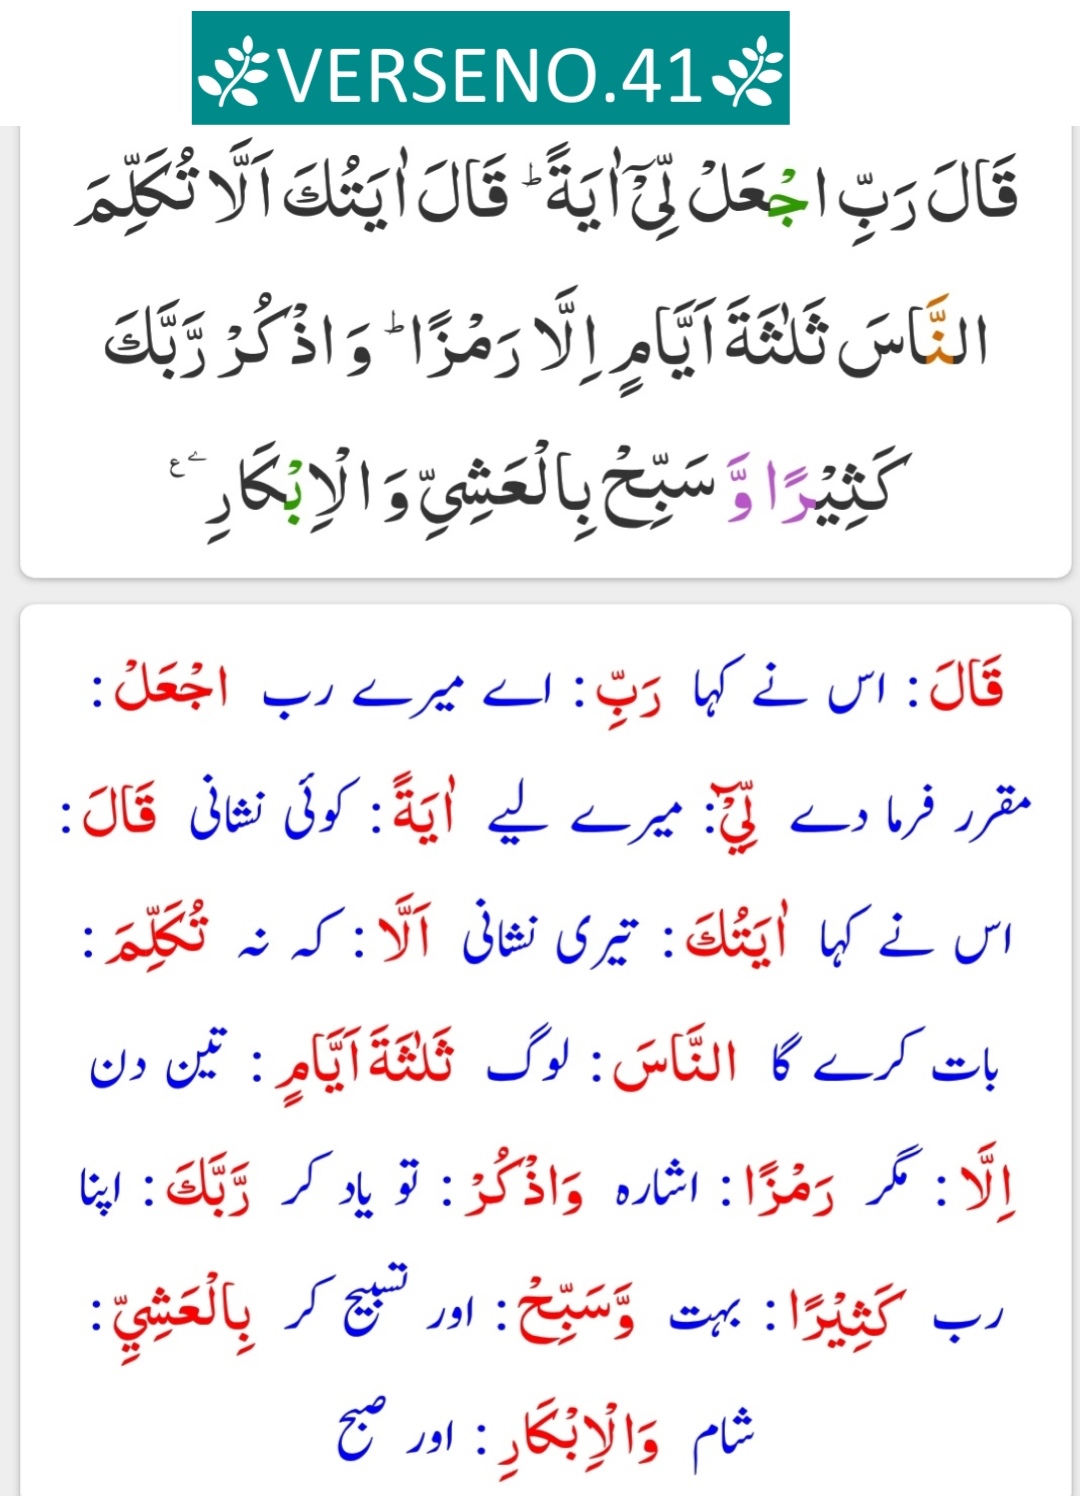 VERSENO.41
قَالَ رَبِّ اجْعَلْ لِّیْۤ اٰیَةً ؕ قَالَ اٰیَتُكَ اَلَّا تُكَلِّمَ
النَّاسَ ثَلٰثَةَ اَیَّامٍ اِلَّا رَمْزًا ؕ وَ اذْكُرْ رَّبَّكَ
كَثِیْرًا وَّ سَبِّحْ بِالْعَشِیِّ وَ الْاِبْكَارِ ۠ ع
قَالَ : اس نے کہا رَبِّ : اے میرے رب اجْعَلْ :
مقرر فرما دے لِّیْۤ : میرے لیے اٰیَةً : کوئی نشانی قَالَ :
اس نے کہا اٰیَتُكَ : تیری نشانی اَلَّا : کہ نہ تُكَلِّمَ :
بات کرے گا النَّاسَ : لوگ ثَلٰثَةَ اَیَّامٍ : تین دن
اِلَّا : مگر رَمْزًا : اشارہ وَاذْكُرْ : تو یاد کر رَّبَّكَ : اپنا
رب كَثِیْرًا : بہت وَّسَبِّحْ : اور تسبیح کر بِالْعَشِیِّ :
شام وَالْاِبْكَارِ : اور صبح